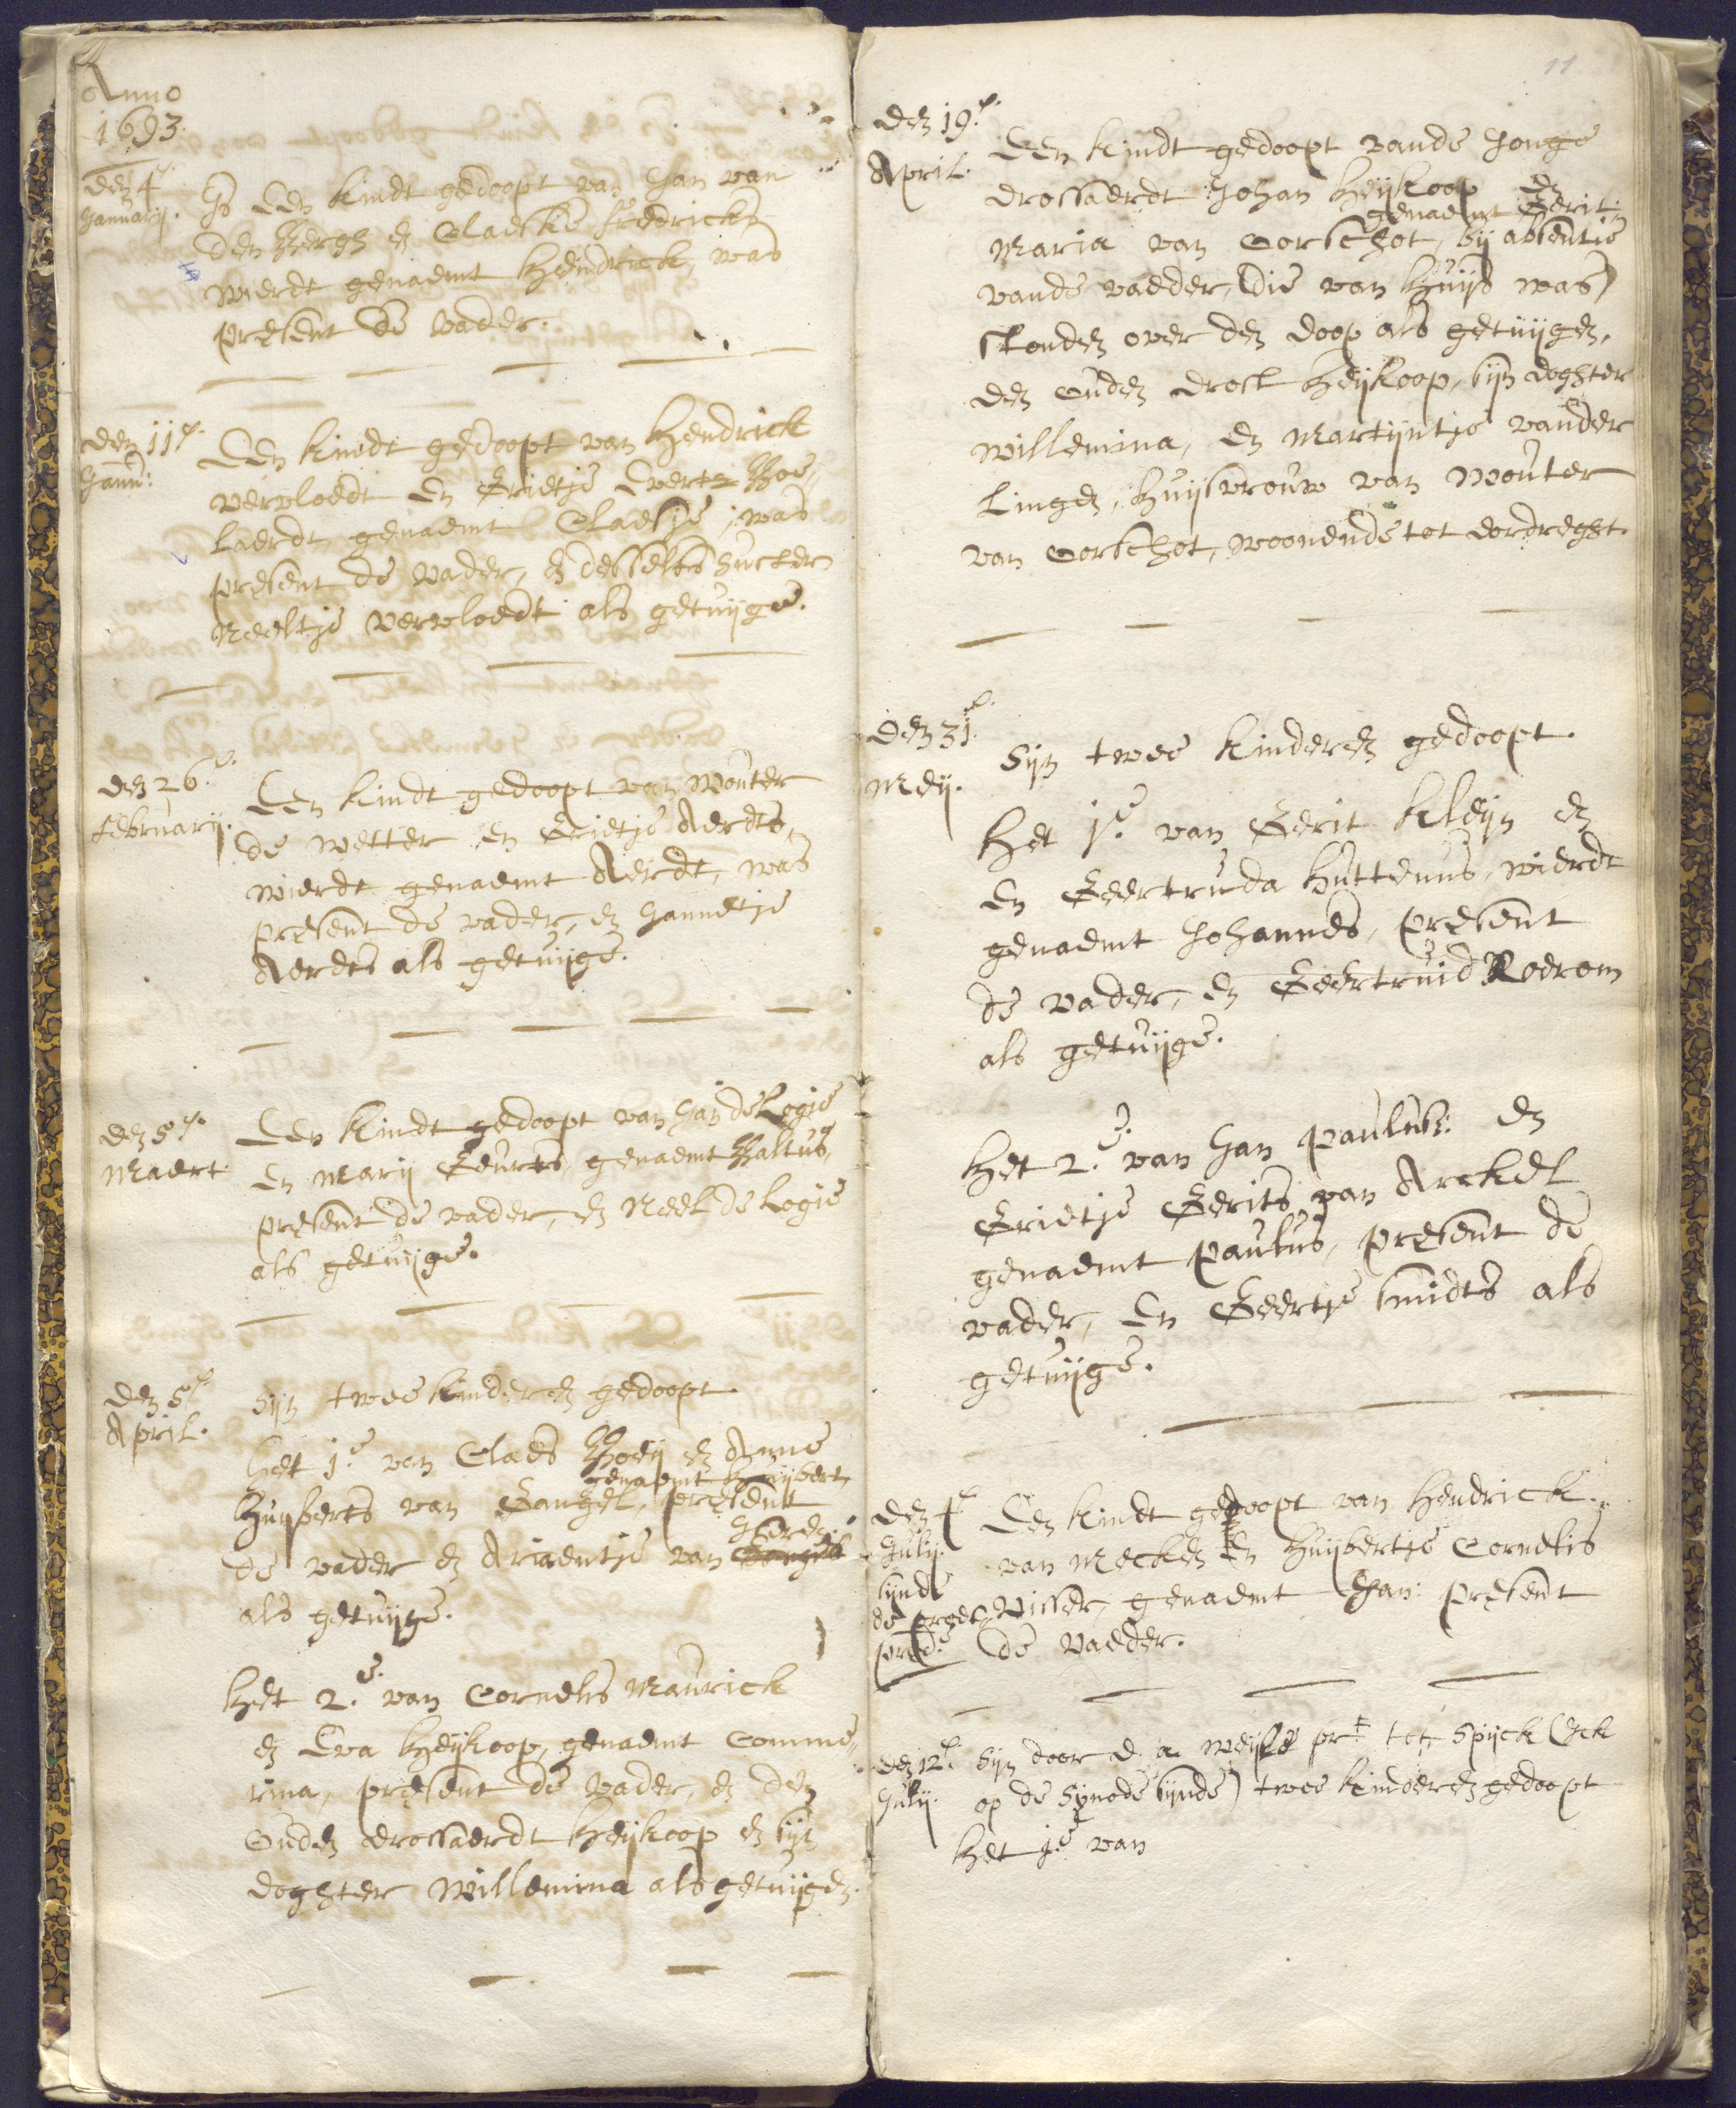 Anno
1693.
den 4.e
Januarij.
Is Een kindt gedoopt van Jan van
den Bergh en Claeske fredericks
wierdt genaemt Hendrick, was
present de vader.
den 11.e
Jann:
Een kindt gedoopt van Hendrick
vervloedt En Grietje Everts Boe„
laerdt, genaemt Claesje, was
present de vader, en desselfs suster
Neeltje vervloedt als getuijge.
den 26.e
februarij.
Een kindt gedoopt van Wouter
de wetter en Grietje Aerdts,
wierdt genaemt Aerdt, was
present de vader, en Jannetje
Aerdts als getuijge.
den 5.e
Maert
Een kindt gedoopt van Jan de Logie
En Marij Geurts, genaemt Baltus,
present de vader, en Neel de Logie
als getuijge.
den 5.e
April.
Sijn twee kinderen gedoopt.
Het 1.e van Claes Boeij en Anne
genaemt Huijbert
Huijberts van Gangel, present
de vader en Ariaentje van
als getuijge.
Het 2.e van Cornelis Maurick
en Eva Heijkoop, genaemt Comme„
rina, present de vader, en den
Ouden drossaerdt Heijkoop en sijn
doghter Willemina als getuijgen.
11
den 19.e
April.
Een kindt gedoopt vande Jonge
drossaerdt Johan Heijkoop En
genaemt Gerit
Maria van Oorschot, bij absentie
vande vaeder, (die van huijs was)
stonden over den doop als getuijgen,
den Ouden drost Heijkoop, sijn doghter
Willemina, En Martijntje vander
Lingen, huijsvrouw van Wouter
van Oorschot, woonende tot dordreght.
den 31.e
Meij.
Sijn twee kinderen gedoopt.
Het 1.e van Gerit Kleijn en
En Geertruda Huttenus, wierdt
genaemt Johannes, present
de vader, En Geertruid Rodrom
als getuijge.
Het 2.e van Jan Paulus: En
Grietje Gerits van Arckel
genaemt Paulus, present de
vader, En Geertje Smidts als
getuijge.
den 4.e
Julij.
sijnde
de
Een kindt gedoopt van Hendrick
van Mecken En Huijbertje Cornelis
Visser, genaemt Jan: present
de Vaeder.
den 12.e
Julij.
Sijn door d. a. pr. tot Spijck (Ick
op de Synode sijnde) twee kinderen gedoopt
Het 1.e van